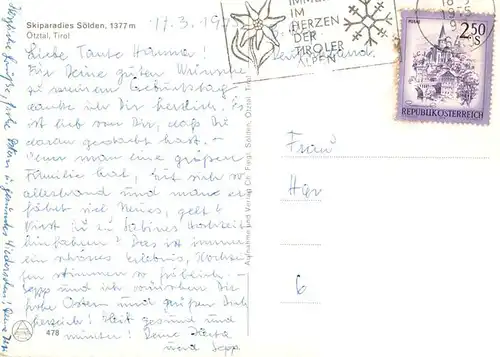 Skiparadies Sölden, 1377 m
Ötztal, Tirol
17.3.
Liebe Tante Hanna!
Für Deine guten Wünsche
zu meinem Geburtstag
danke ich Dir herzlich. Es
ist lieb von Dir, daß Du
daran gedacht hast. -
Wenn man eine große
Familie hat, tut sich so
allerhand und man er-
fährt viel Neues, gelt?
Wirst Du zu Sabines Hochzeit
hinfahren? Das ist immer
ein schönes Erlebnis, Hochzei-
ten stimmen so fröhlich. -
Sepp und ich wünschen Dir
frohe Ostern und grüßen Dich
herzlich! Bleib gesund und
munter! Deine
und Sepp
478
Herzliche Grüße, frohe Ostern u. gesundes Wiedersehen! Deine
Aufnahme und Verlag Ch. Fiegl, Sölden, Ötztal, Tirol
IM
HERZEN
DER
TIROLER
ALPEN
2,50
S
REPUBLIK ÖSTERREICH
Frau
Hier
6